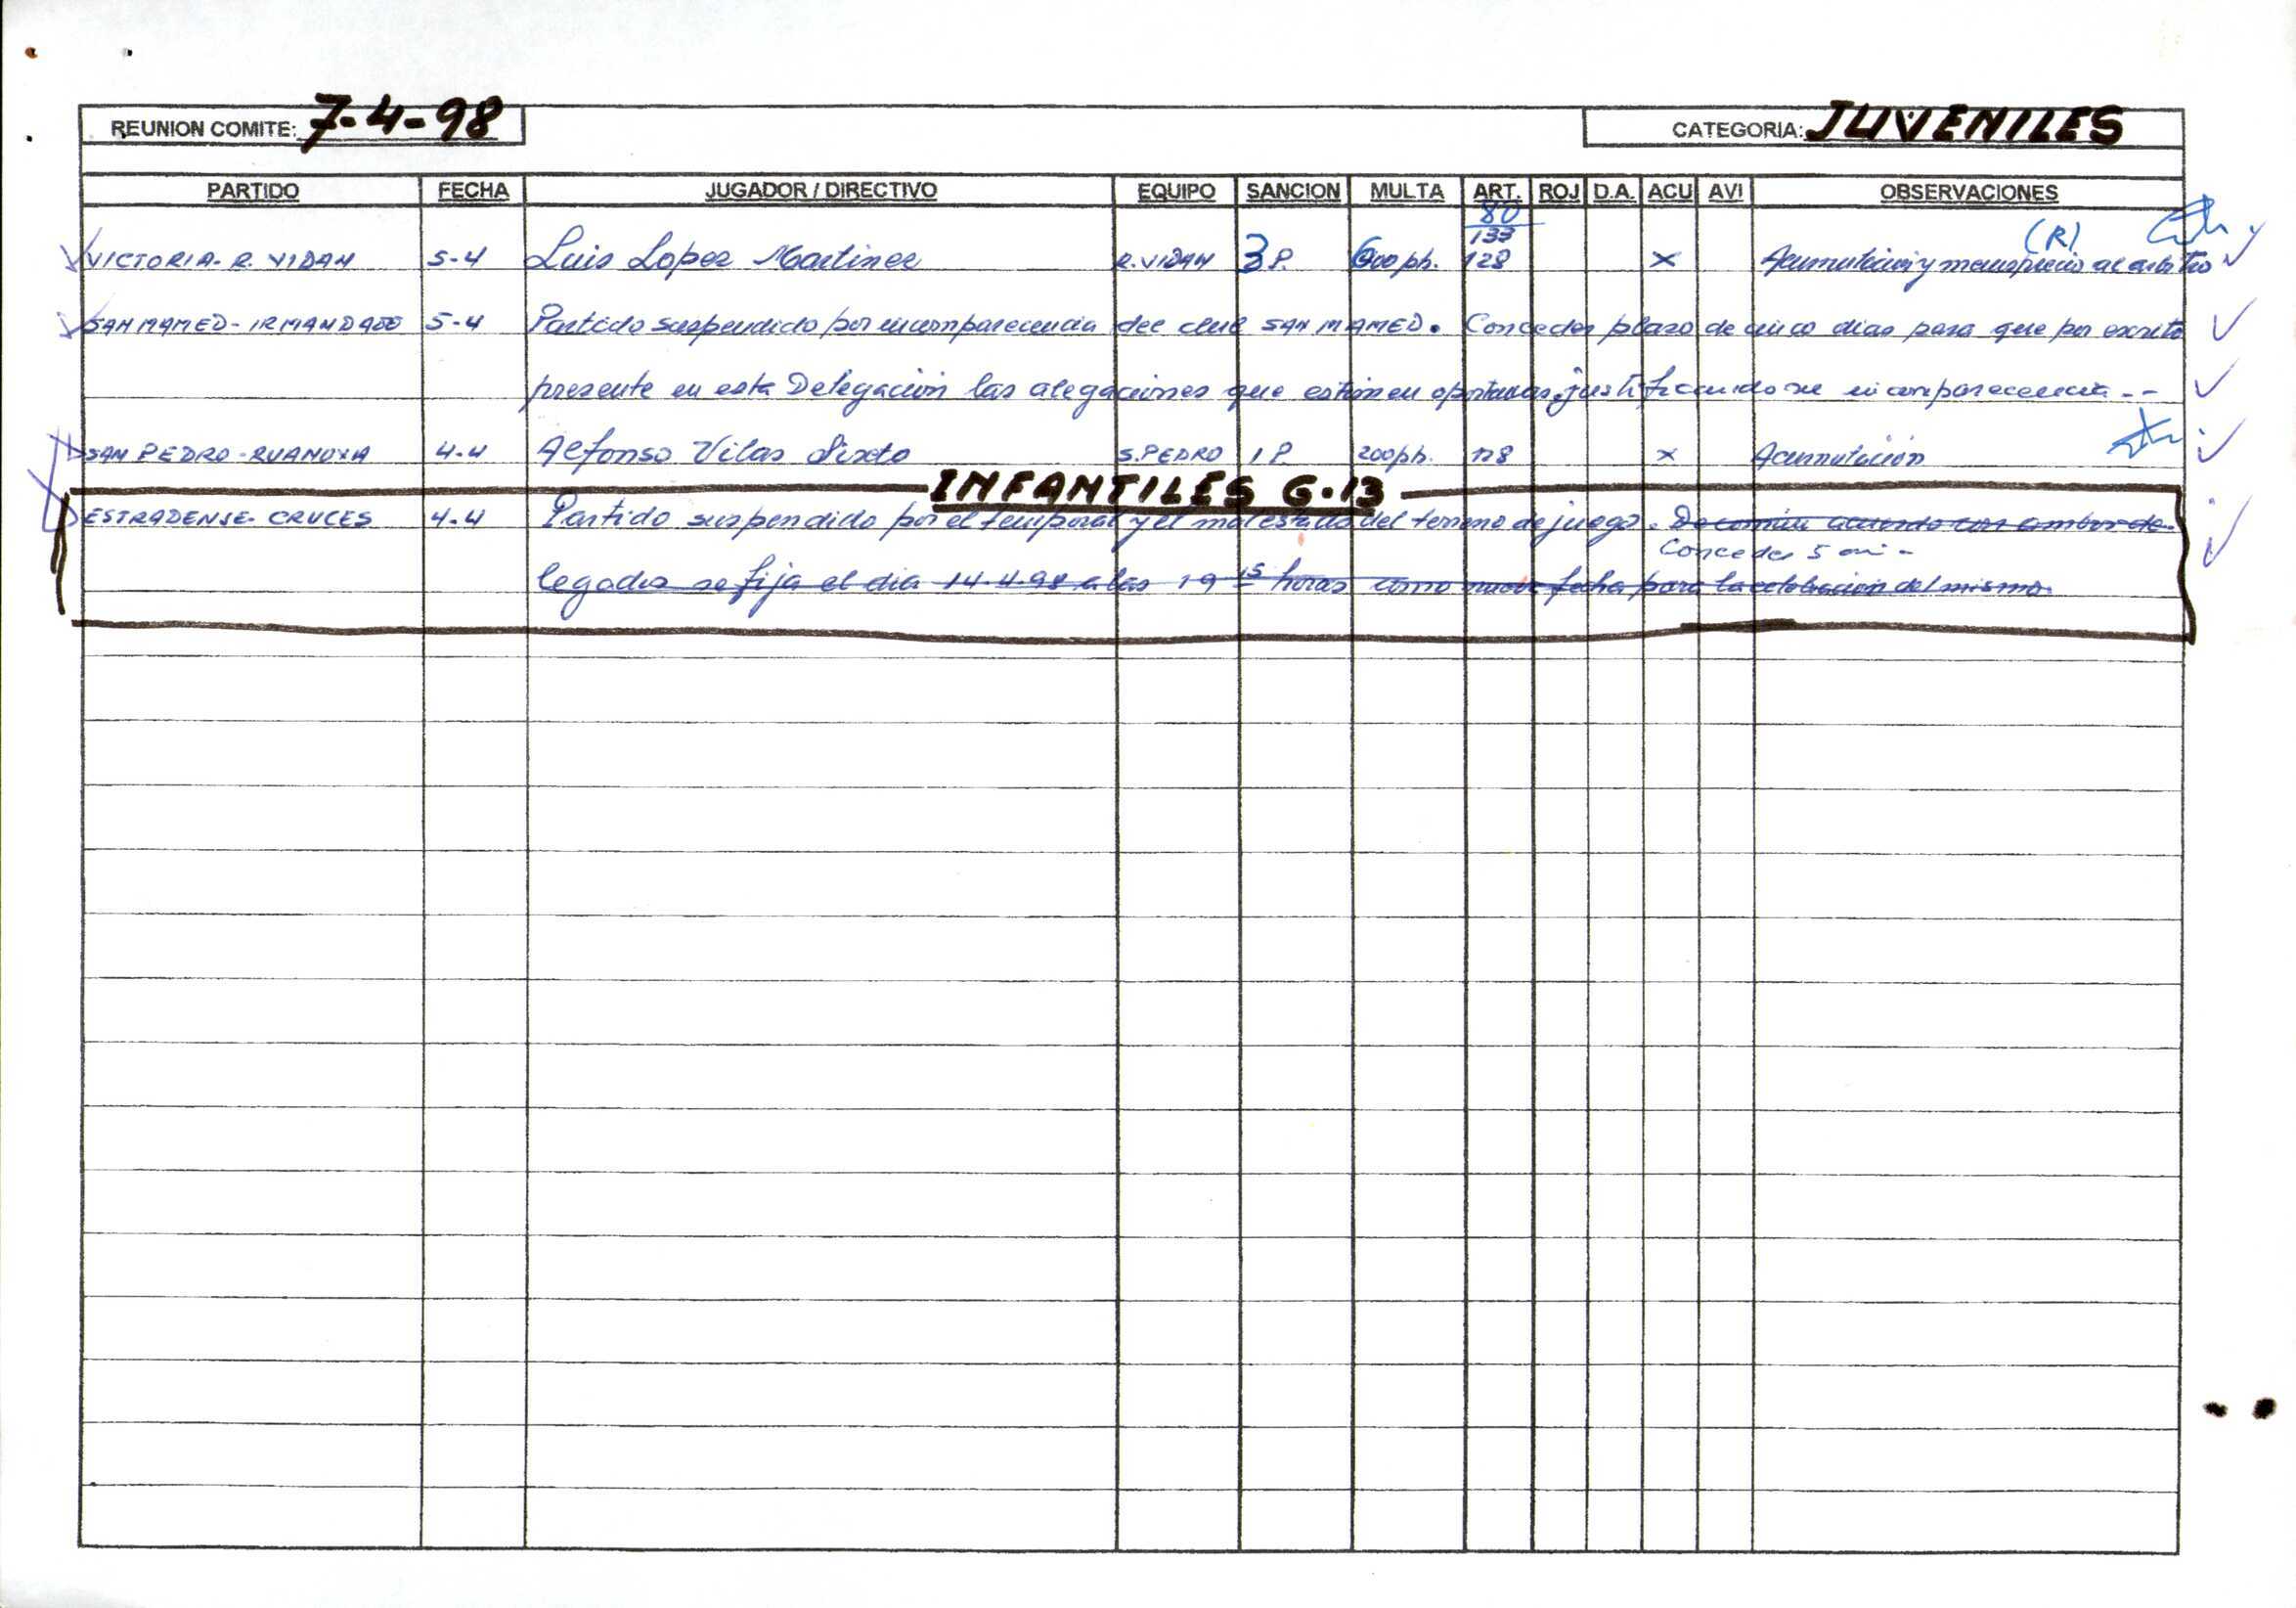 REUNION COMITE: 7-4-98 CATEGORIA: JUVENILES
PARTIDO FECHA JUGADOR / DIRECTIVO EQUIPO SANCION MULTA ART. ROJ D.A. ACU AVI OBSERVACIONES
80
133 (R)
VICTORIA- R. VIDAN 5-4 Luis Lopez Martinez R. VIDAN 3 P. 600 pts. 128 x Acumulación y menosprecio al arbitro
SAN MAMED - IRMANDADE 5-4 Partido suspendido por incomparecencia del club SAN MAMED. Conceder plazo de cinco dias para que por escrito
presente en esta Delegación las alegaciones que estimen oportunas, justificando su incomparecencia.--
SAN PEDRO - RUANOVA 4-4 Alfonso Vilas Sixto S. PEDRO 1 P. 200 pts. 128 x Acumulación
INFANTILES G-13
ESTRADENSE- CRUCES 4-4 Partido suspendido por el temporal y el mal estado del terreno de juego. De común acuerdo con ambos de-
Conceder 5
legados se fija el dia 14-4-98 a las 19 15 horas como nueva fecha para la celebración del mismo.